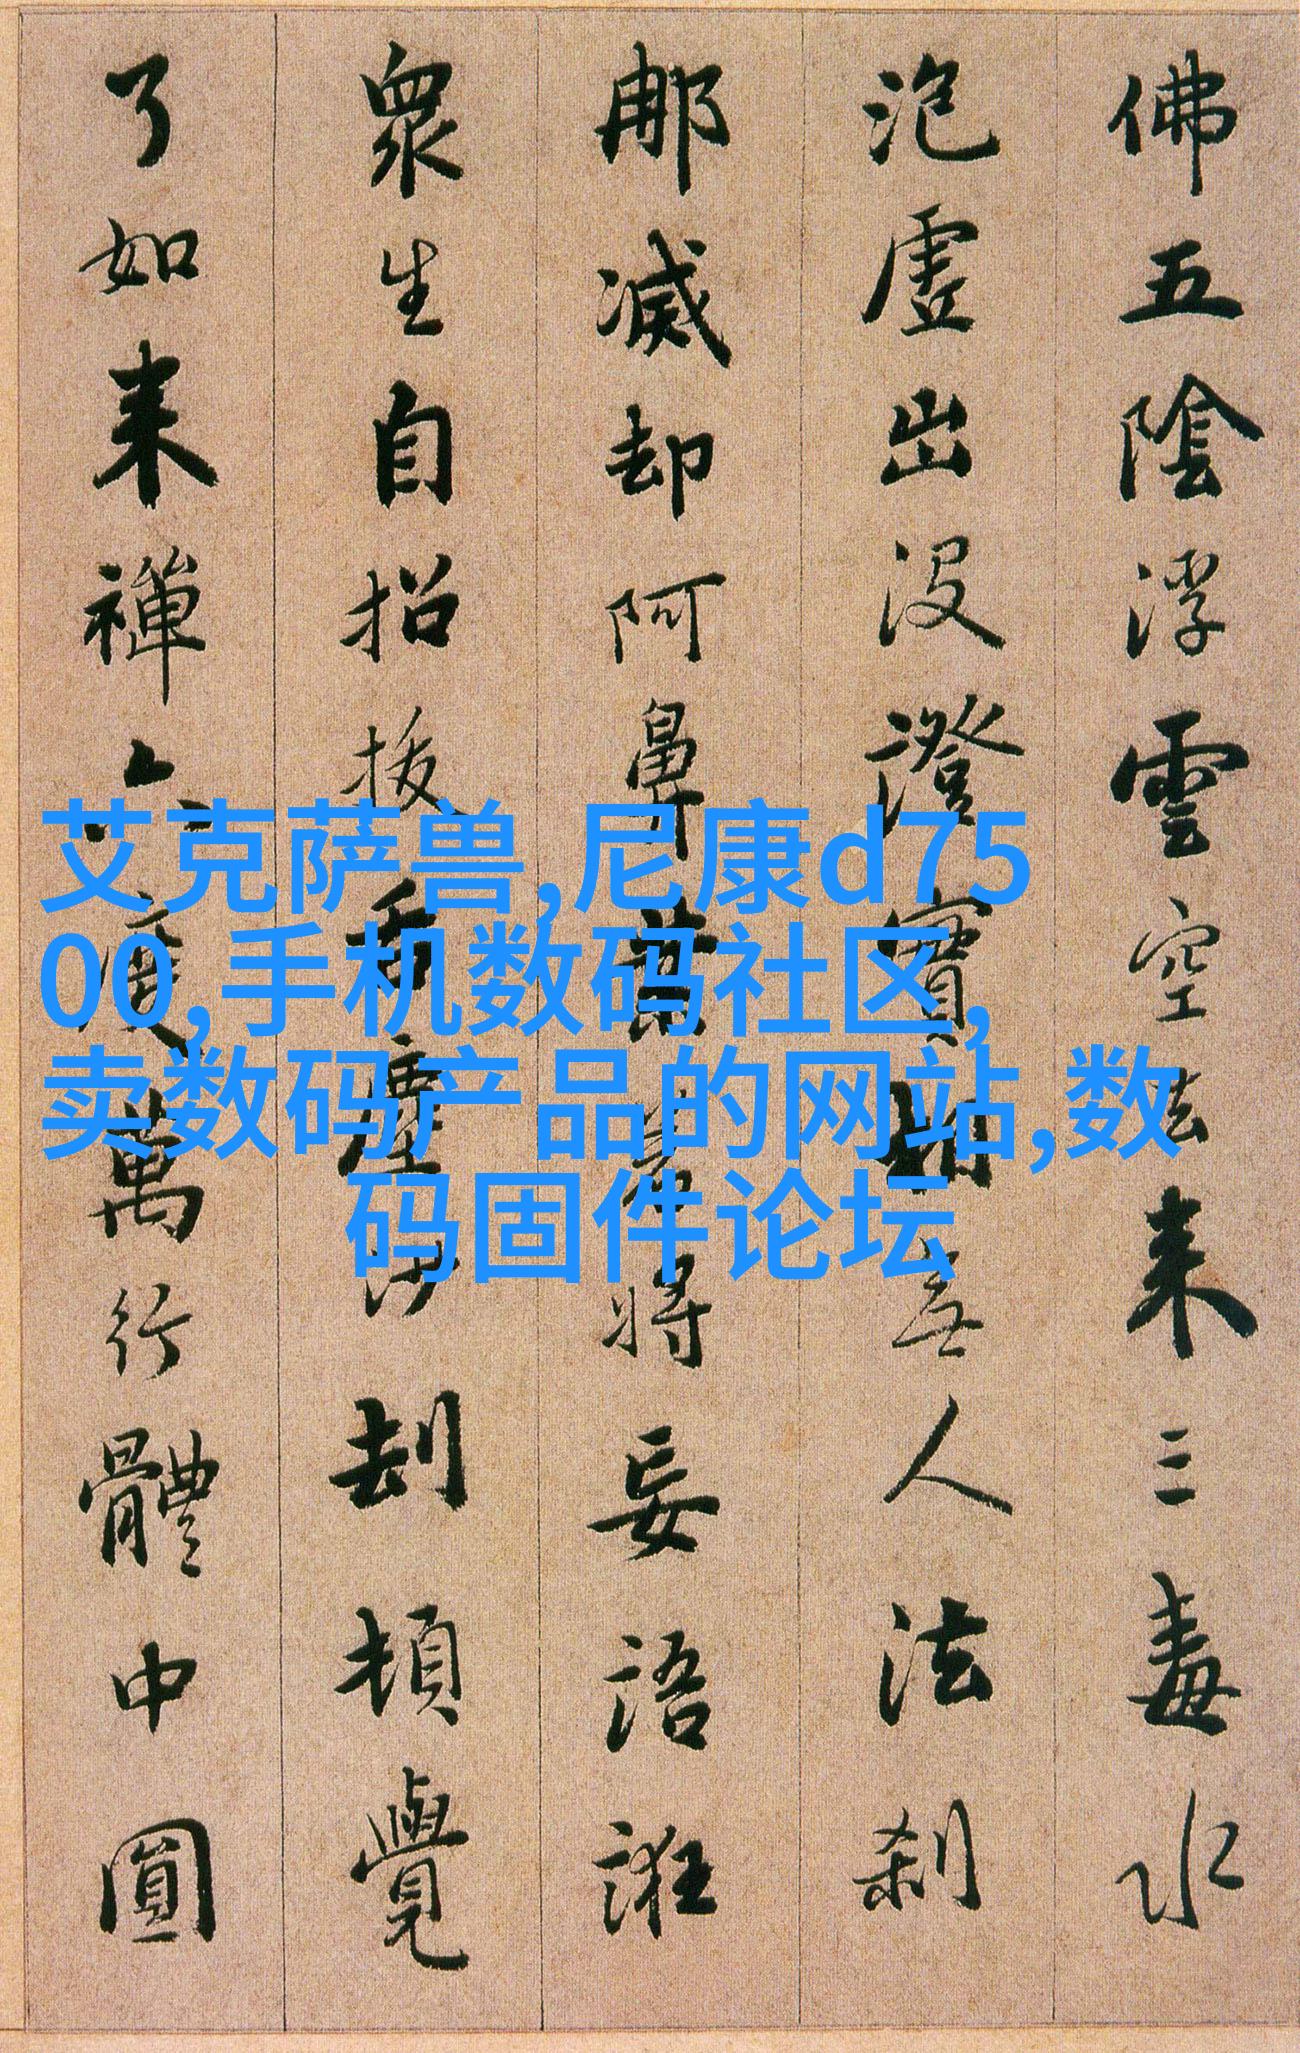 佛五陰浮雲空去来三毒水
泡虛出没證實相無人法刹
那滅却阿鼻業若將妄語誑
衆生自招拔舌塵沙劫頓覺
了如来禪六度萬行體中圓
艾克萨兽,尼康d75
00,手机数码社区,
卖数码产品的网站,数
码固件论坛